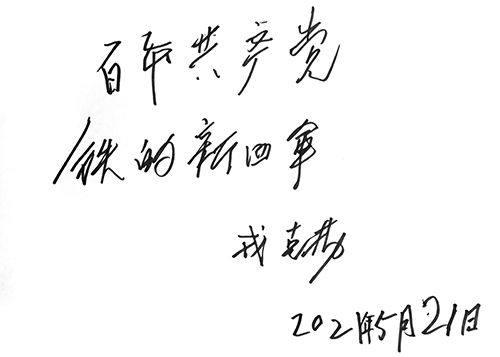 百年共产党
铁的新四军
戎克
2021年5月21日